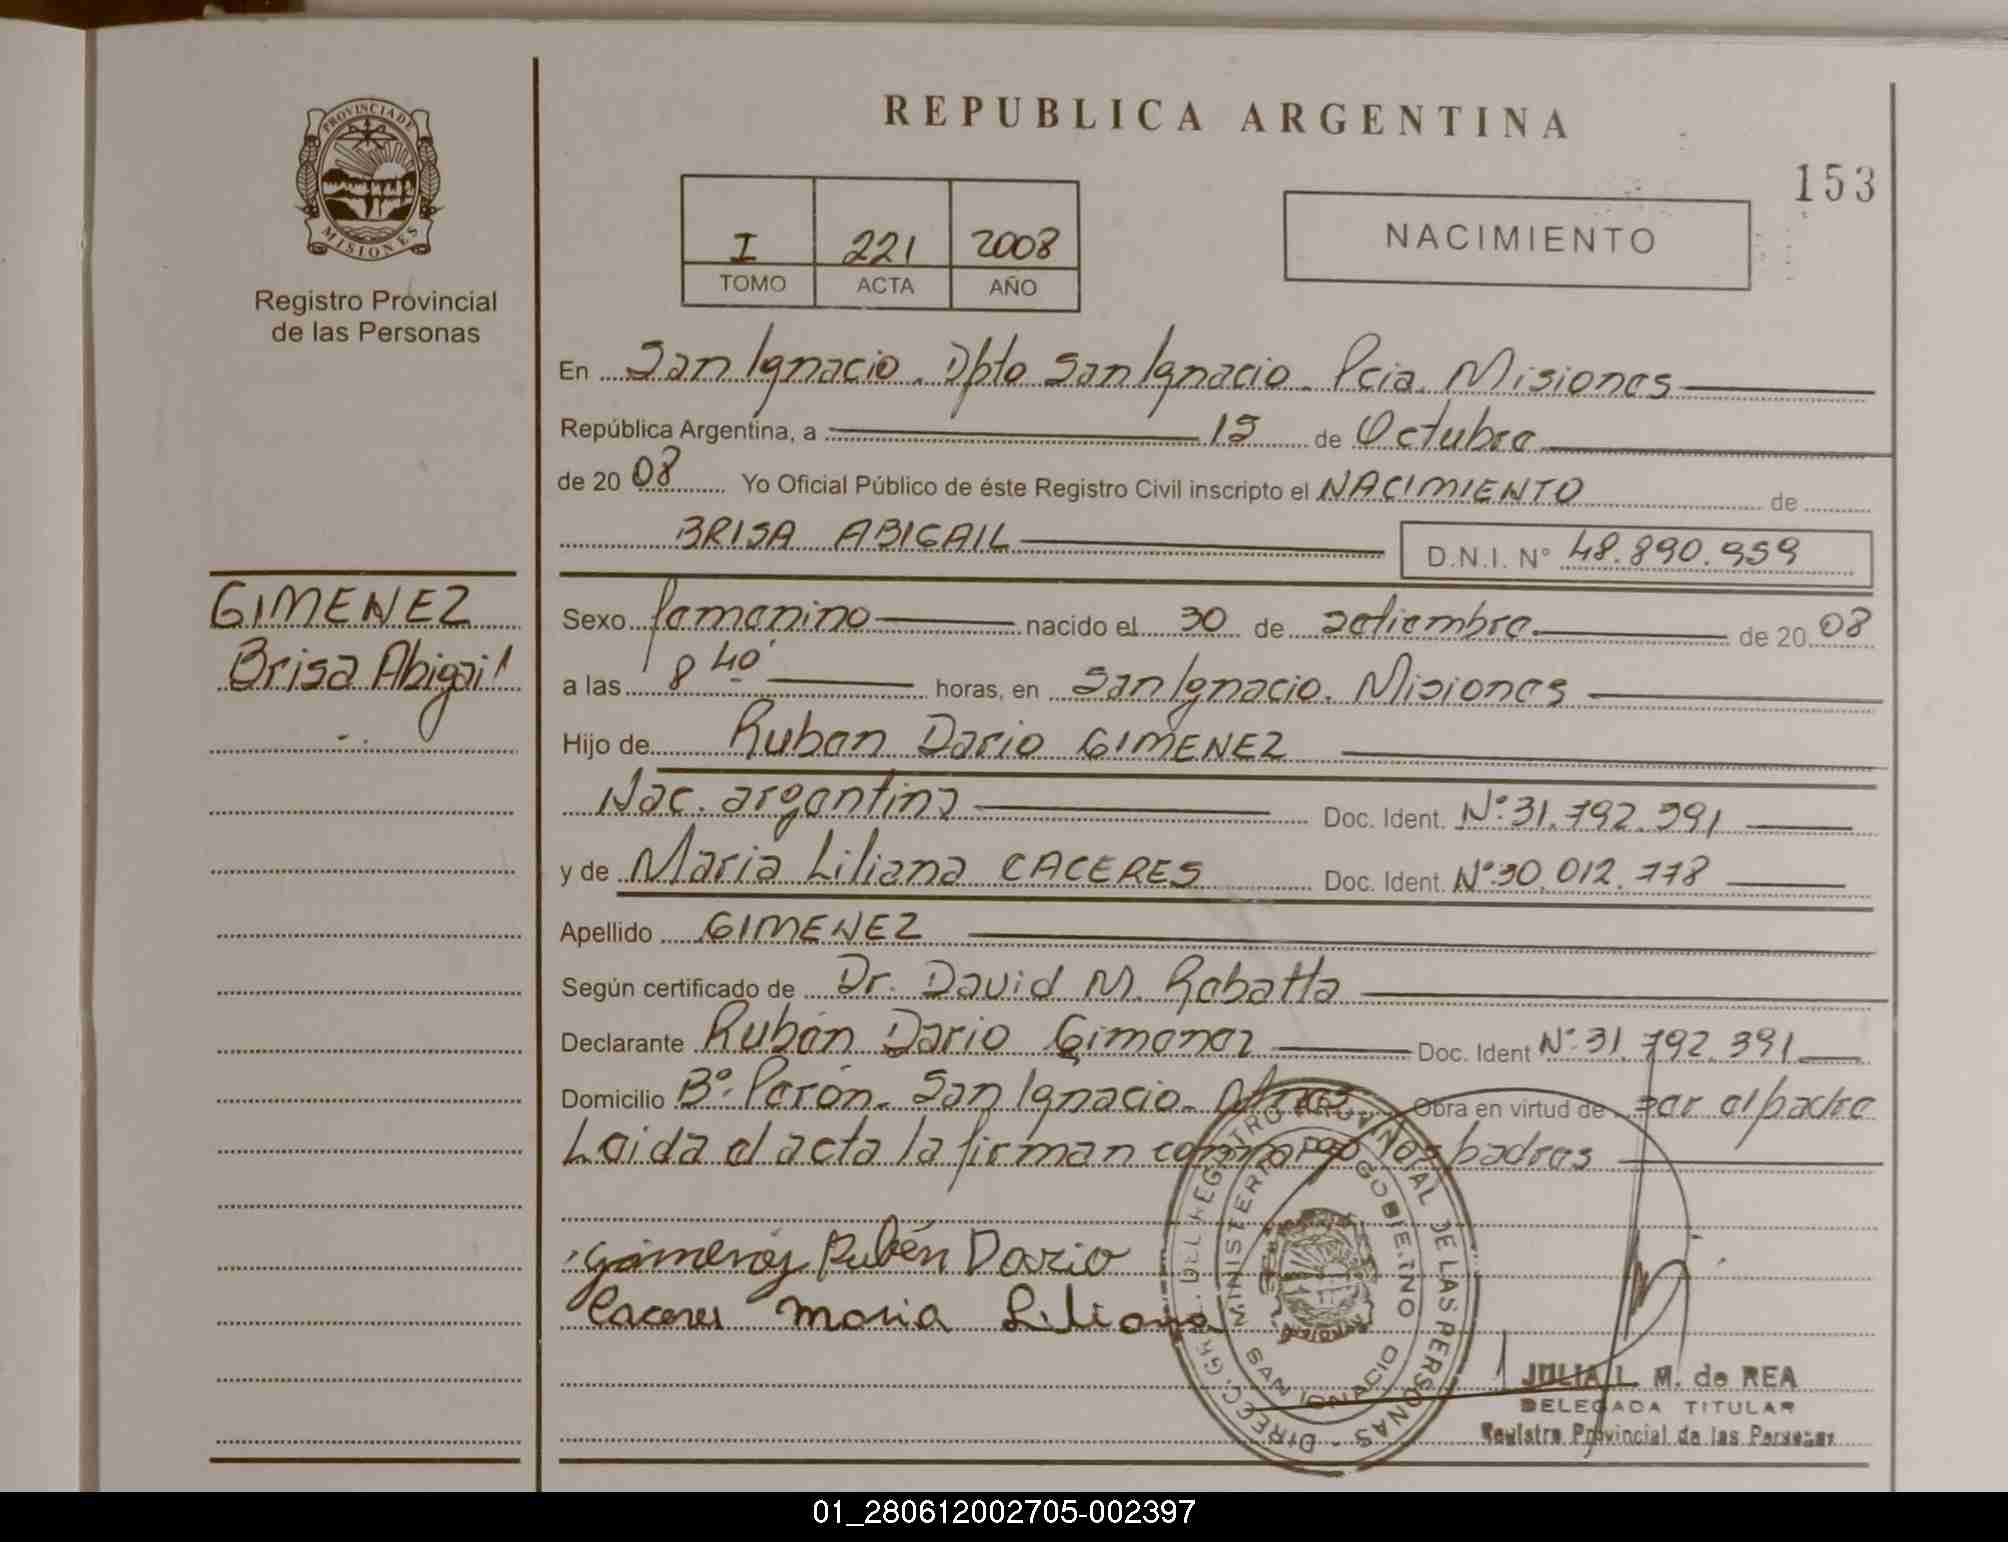 REPUBLICA ARGENTINA
153
PROVINCIA DE MISIONES
Registro Provincial
de las Personas
I 221 2008
TOMO ACTA AÑO
NACIMIENTO
En San Ignacio. Dpto San Ignacio. Pcia. Misiones
República Argentina, a 15 de Octubre
de 2008 Yo Oficial Público de éste Registro Civil inscripto el NACIMIENTO de
BRISA ABIGAIL D.N.I. N° 48.890.959
GIMENEZ
Brisa Abigail
Sexo femenino nacido el 30 de setiembre de 2008
a las 8 40' horas, en San Ignacio. Misiones
Hijo de Ruben Dario GIMENEZ
Nac. argentina Doc. Ident. N°31.792.391
y de Maria Liliana CACERES Doc. Ident. N°30.012.778
Apellido GIMENEZ
Según certificado de Dr. David M. Rebatta
Declarante Rubén Dario Gimenez Doc. Ident N°31.792.391
Domicilio B°. Perón. San Ignacio. Mnes Obra en virtud de ser el padre
Leida el acta la firman conmigo los padres
Gimenez Rubén Dario
Caceres Maria Liliana
DIRECC. GRAL. DEL REGISTRO PROVINCIAL DE LAS PERSONAS -
MINISTERIO DE GOBIERNO
SAN IGNACIO
JULIA L. M. de REA
DELEGADA TITULAR
Registro Provincial de las Personas
01_280612002705-002397